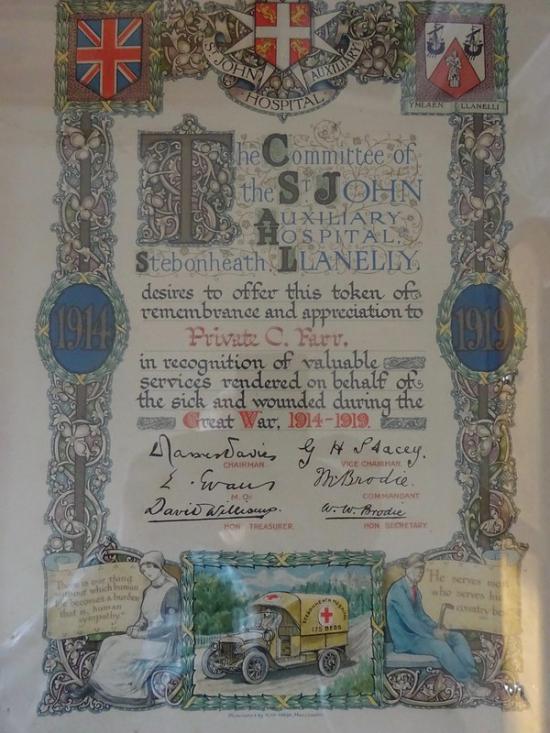 ST JOHN AUXILIARY
HOSPITAL.
YMLAEN LLANELLI
The Committee of
the ST JOHN
AUXILIARY
HOSPITAL.
Stebonheath, LLANELLY,
desires to offer this token of
remembrance and appreciation to
Private C. Farr.
in recognition of valuable
services rendered on behalf of
the sick and wounded during the
Great War, 1914-1919.
1914
1919
James Davies
CHAIRMAN
G H Stacey.
VICE CHAIRMAN
E. Evans
M.O.
M Brodie.
COMMANDANT
David Williams.
HON TREASURER
W. W. Brodie
HON SECRETARY
There is one thing
without which human
life becomes a burden
that is, human
sympathy.
STEBONHEATH
175 BEDS
He serves most
who serves his
country best